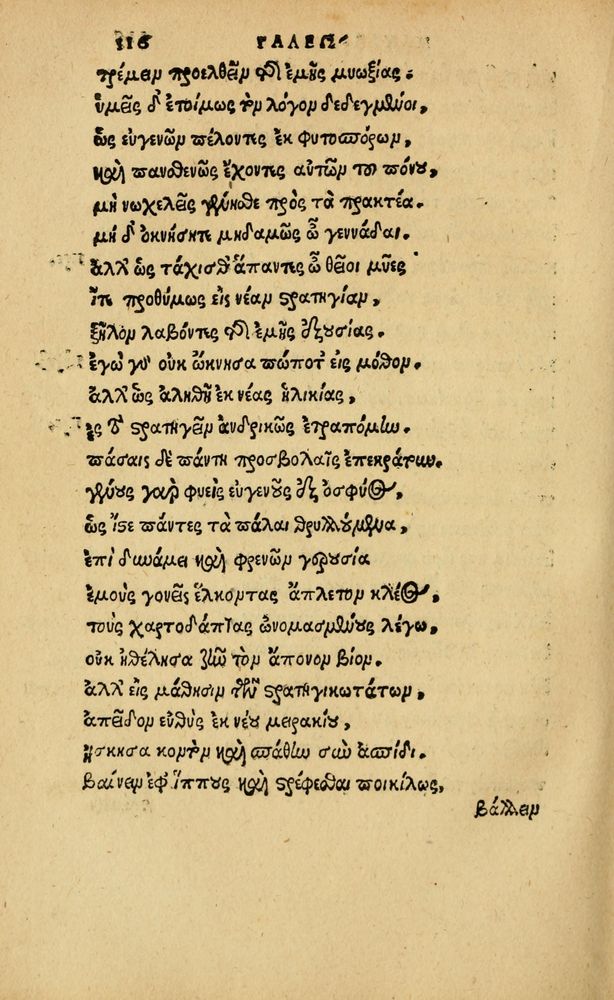 116 ΓΑΛΕΩ
τρέμειν προελθεῖν τῆς ἐμῆς μυωξίας.
ὑμεῖς δ' ἑτοίμως τὸν λόγον δεδεγμένοι,
ὡς εὐγενῶν πέλοντες ἐκ φυτοσπόρων,
καὶ πανσθενῶς ἔχοντες αὐτῶν τοῦ πόνου,
μὴ νωχελεῖς γένησθε πρὸς τὰ πρακτέα.
μὴ δ' ὀκνήσητε μηδαμῶς ὦ γεννάδαι.
ἀλλ' ὡς τάχισθ' ἅπαντες ὦ θεῖοι μῦες
ἴτε προθύμως εἰς νέαν στρατηγίαν,
ζῆλον λαβόντες τῆς ἐμῆς ἐξουσίας.
ἐγὼ γὰρ οὐκ ὤκνησα πώποτ' εἰς μόθον.
ἀλλ' ὡς ἀληθῆ ἐκ νέας ἡλικίας,
ἐς τὸ στρατηγεῖν ἀνδρικῶς ἐτραπόμην.
πάσαις δὲ πάντη προσβολαῖς ἐπεκράτουν.
γένους γὰρ φυεὶς εὐγενοῦς ἐξ ὀσφύος,
ὡς ἴστε πάντες τὰ πάλαι θρυλλούμενα,
ἐπὶ δυνάμει καὶ φρενῶν γερουσία
ἐμοὺς γονεῖς ἕλκοντας ἄπλετον κλέος,
τοὺς χαρτοδάπτας ὠνομασμένους λέγω,
οὐκ ἠθέλησα ζῆν τὸν ἄπονον βίον.
ἀλλ' εἰς μάθησιν τῶν στρατηγικωτάτων,
σπεῖδον εὐθὺς ἐκ νέου μειρακίου,
ἤσκησα κοντὸν καὶ σπάθην σὺν ἀσπίδι.
βαίνειν ἐφ' ἵππους καὶ στρέφεσθαι ποικίλως,
βάλλειν